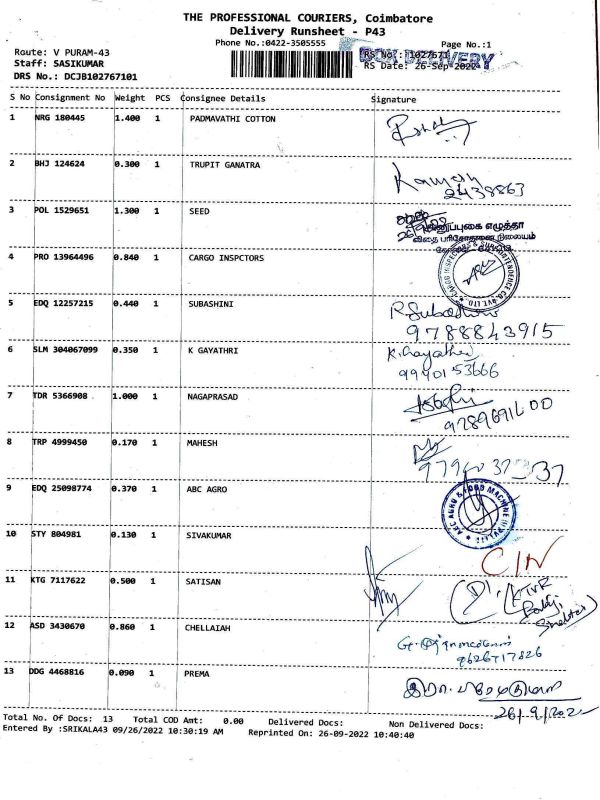 THE PROFESSIONAL COURIERS, Coimbatore
Delivery Runsheet - P43
Phone No.:0422-3505555
Page No.:1
Route: V PURAM-43
RS No.: 1027671
BOX DELIVERY
Staff: SASIKUMAR
RS Date: 26-Sep-2022
DRS No.: DCJB102767101
S No Consignment No Weight PCS Consignee Details Signature
1 NRG 180445 1.400 1 PADMAVATHI COTTON
2 BHJ 124624 0.300 1 TRUPIT GANATRA
2438863
3 POL 1529651 1.300 1 SEED
விதை பரிசோதனை நிலையம்
4 PRO 13964496 0.840 1 CARGO INSPCTORS
5 EDQ 12257215 0.440 1 SUBASHINI R. Subashini
9788843915
6 SLM 304067099 0.350 1 K GAYATHRI K. Gayathri
9990153666
7 TDR 5366908 1.000 1 NAGAPRASAD
8 TRP 4999450 0.170 1 MAHESH
9 EDQ 25098774 0.370 1 ABC AGRO
ABC AGRO & FOOD MACHINE
10 STY 804981 0.130 1 SIVAKUMAR
C/N
11 KTG 7117622 0.500 1 SATISAN
KTVR
12 ASD 3430670 0.860 1 CHELLAIAH
9626717826
13 DDG 4468816 0.090 1 PREMA
Total No. Of Docs: 13 Total COD Amt: 0.00 Delivered Docs: Non Delivered Docs:
26/9/202
Entered By :SRIKALA43 09/26/2022 10:30:19 AM Reprinted On: 26-09-2022 10:40:40